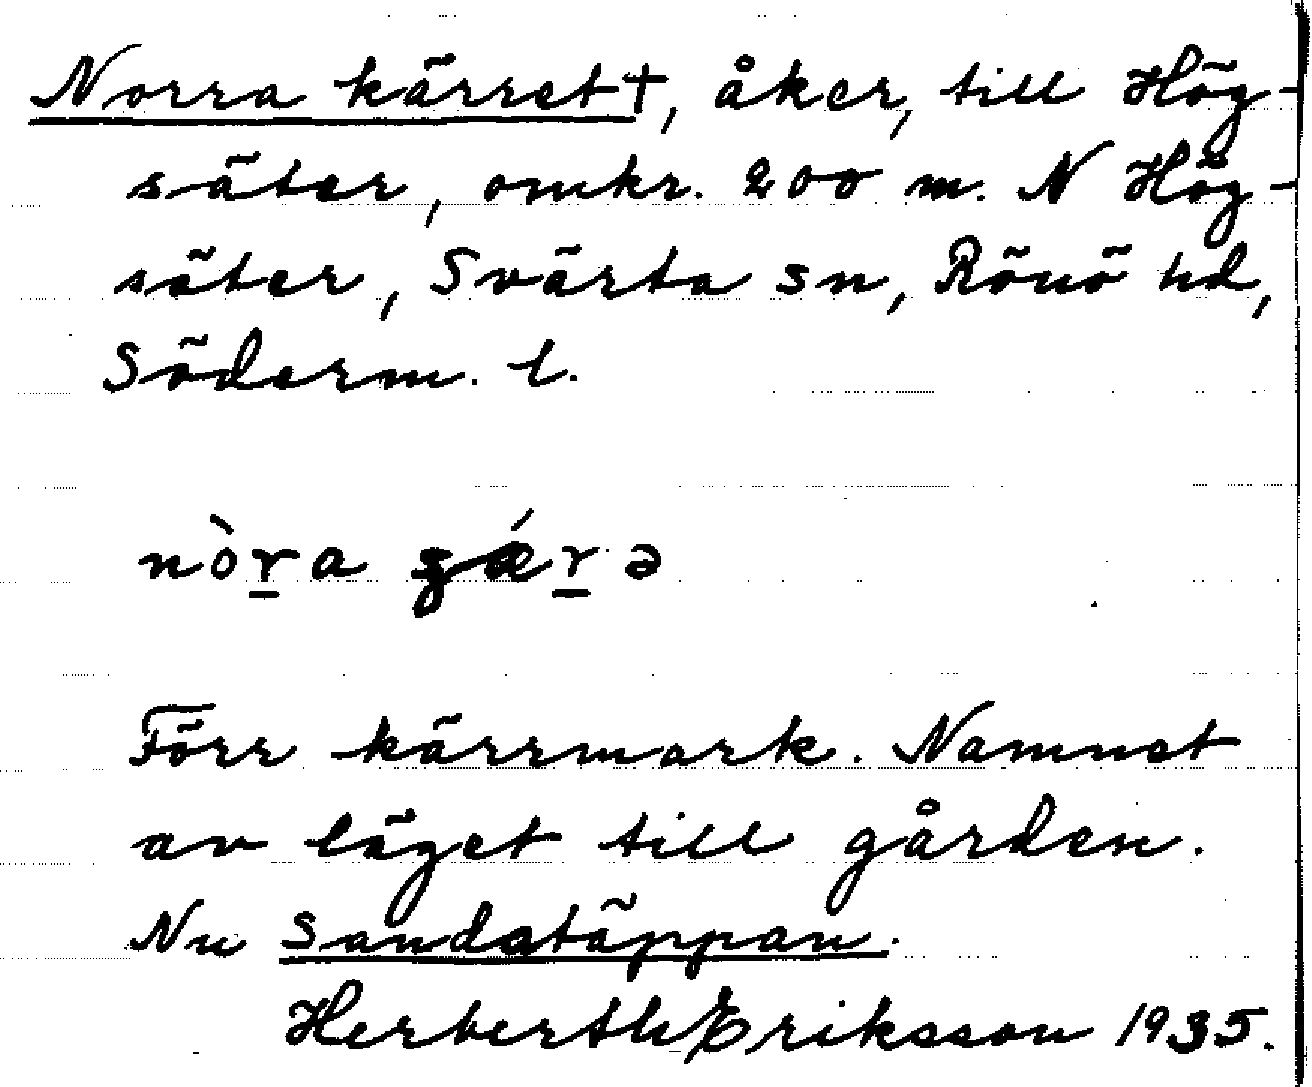 Norra kärret†, åker, till Hög-
säter, omkr. 200 m. N Hög-
säter, Svärta sn, Rönö hd,
Söderm. l.
nòr̲a
Förr kärrmark. Namnet
av läget till gården.
Nu Sandatäppan.
Herberth Eriksson 1935.